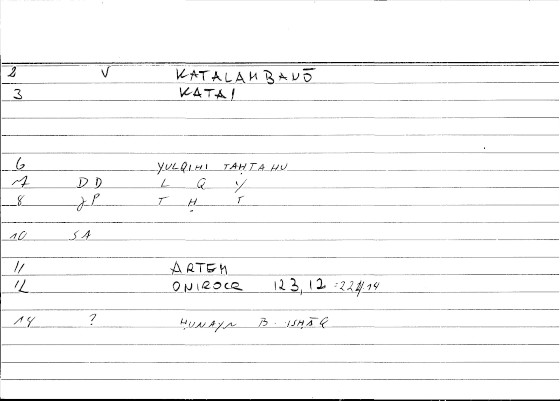 2 V KATALAMBANŌ
3 KATAI
6 YULQIHI TAḤTAHU
7 DD L Q Y
8 JP T Ḥ T
10 SA
11 ARTEM
12 ONIROCR 123,12 = 224/14
14 ? ḤUNAYN B. ISḤĀQ